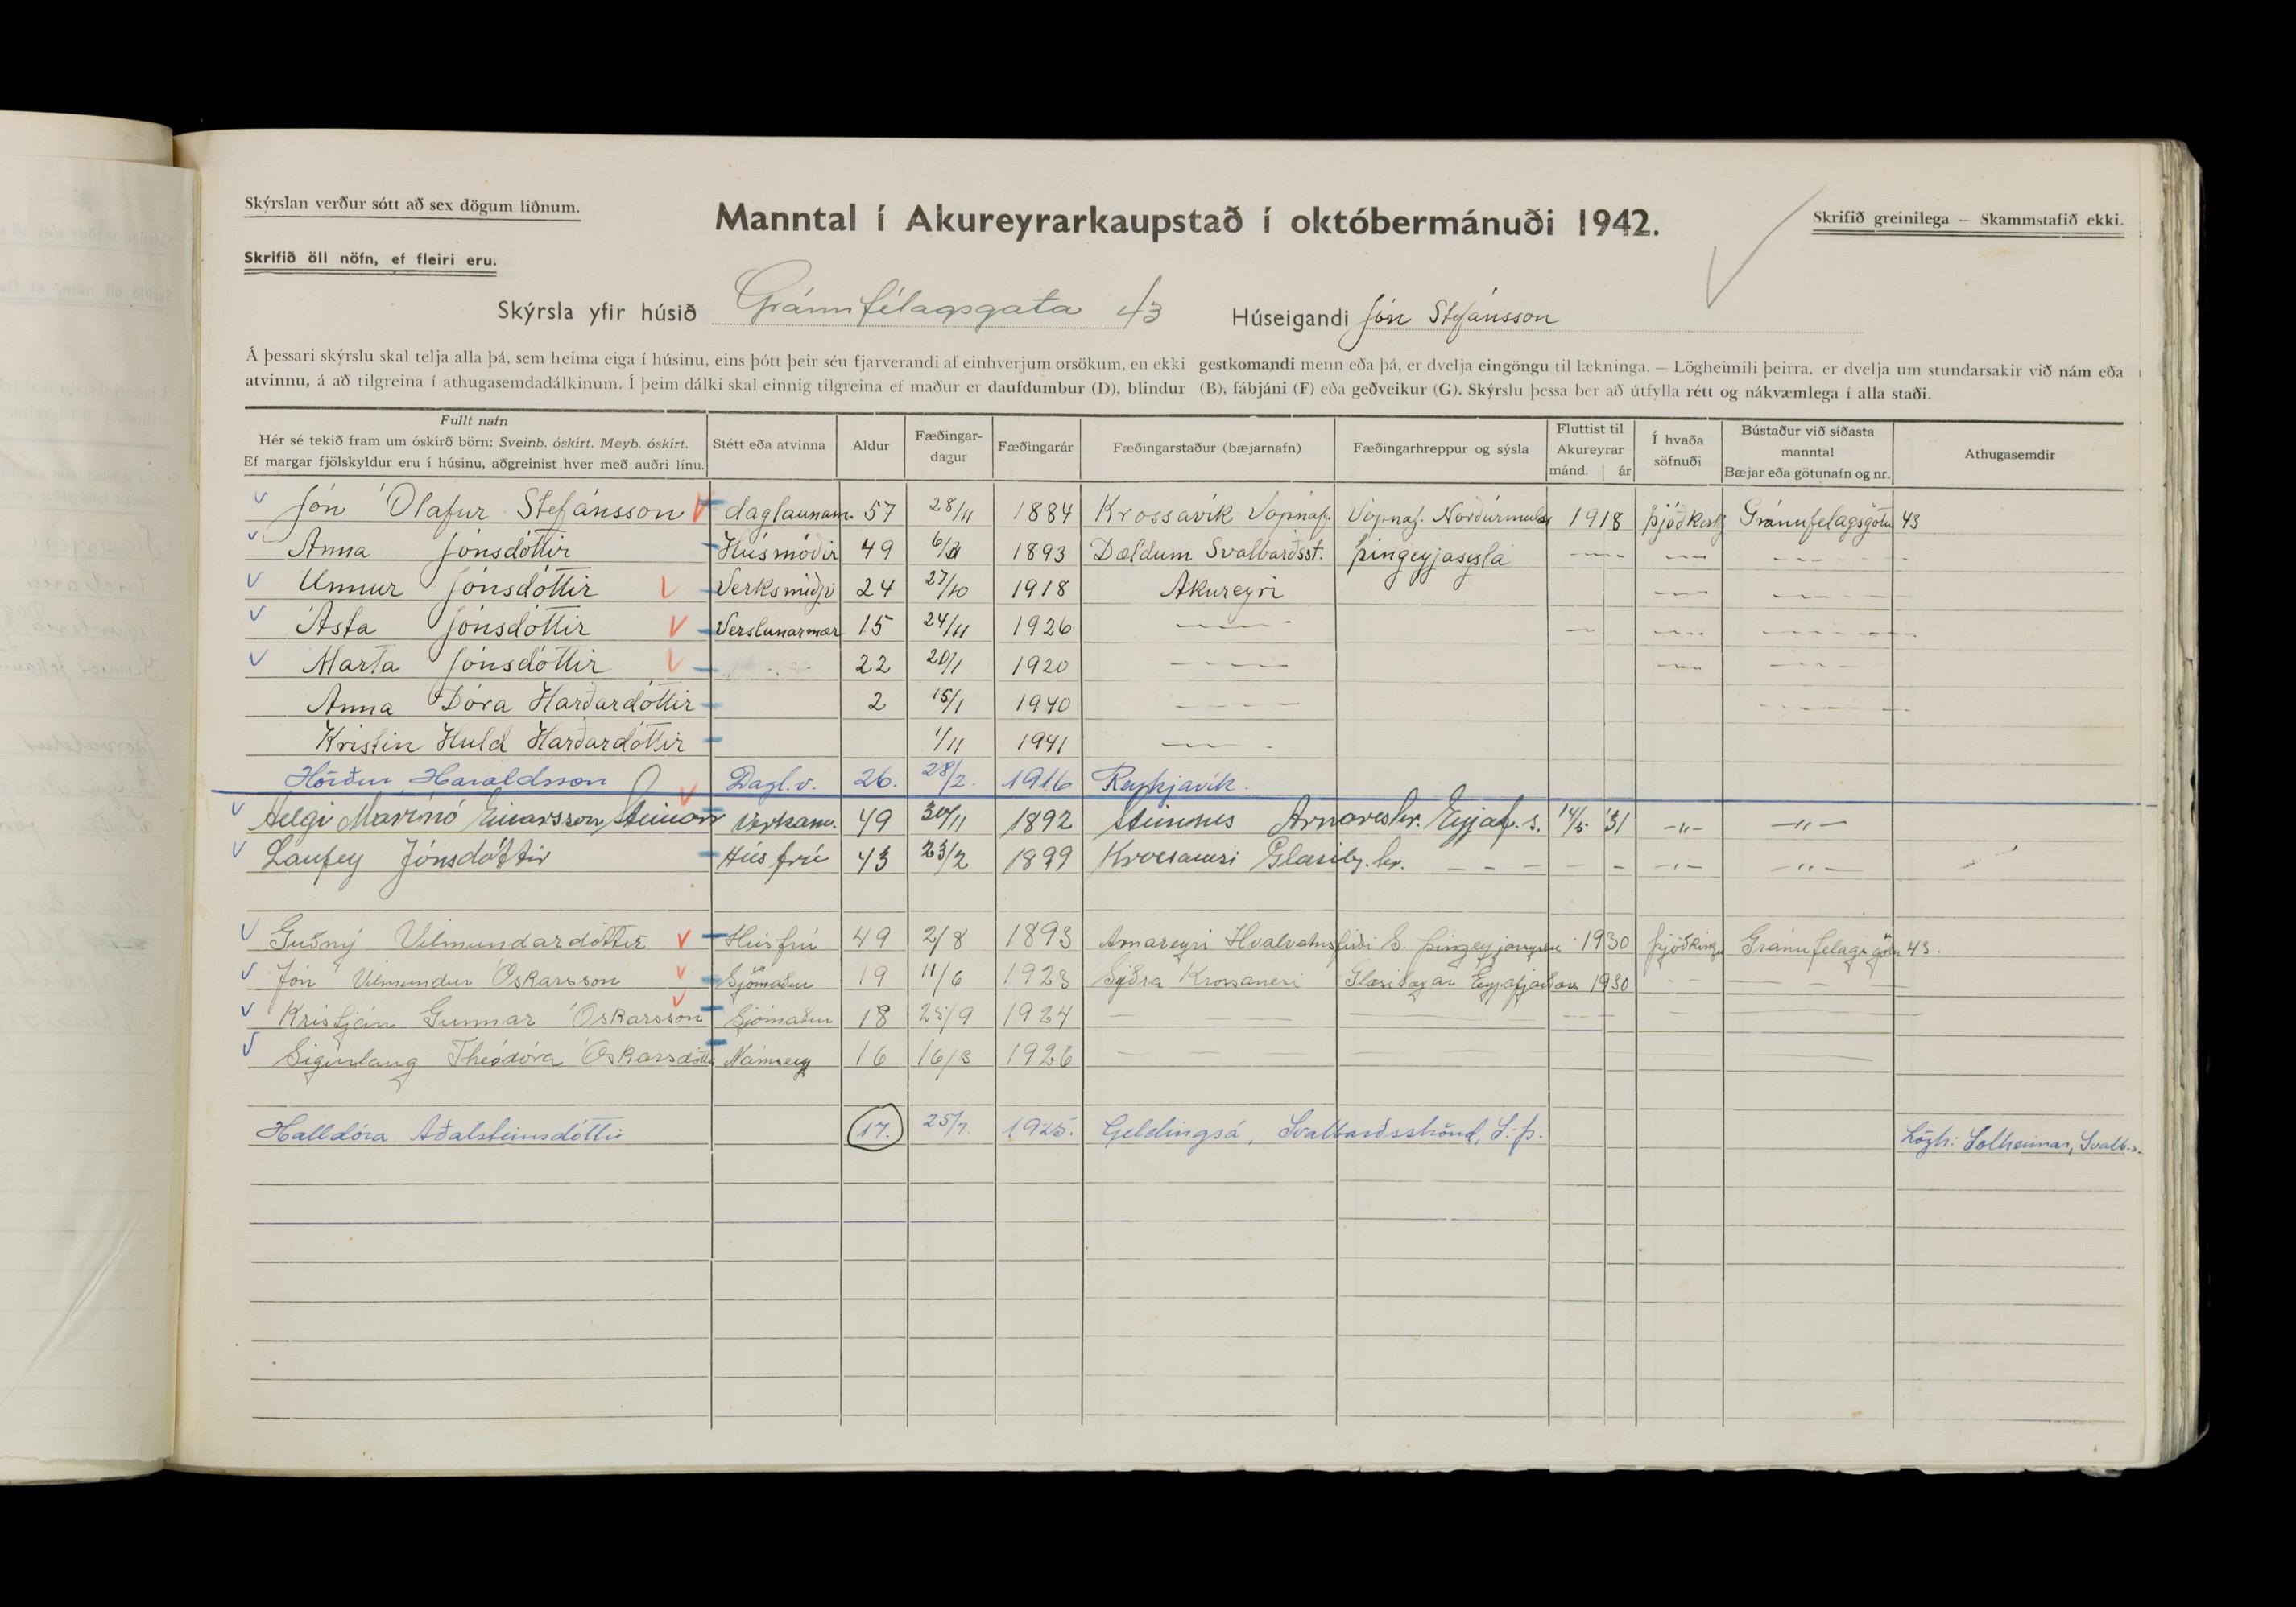 Skýrslan verður sótt að sex dögum liðnum.
Manntal í Akureyrarkaupstað í októbermánuði 1942.
Skrifið greinilega — Skammstafið ekki.
Skrifið öll nöfn, ef fleiri eru.
Skýrsla yfir húsið Gránufélagsgata 43 Húseigandi Jón Stefánsson
Á þessari skýrslu skal telja alla þá, sem heima eiga í húsinu, eins þótt þeir séu fjarverandi af einhverjum orsökum, en ekki gestkomandi menn eða þá, er dvelja eingöngu til lækninga. — Lögheimili þeirra, er dvelja um stundarsakir við nám eða
atvinnu, á að tilgreina í athugasemdadálkinum. Í þeim dálki skal einnig tilgreina ef maður er daufdumbur (D), blindur (B), fábjáni (F) eða geðveikur (G). Skýrslu þessa ber að útfylla rétt og nákvæmlega í alla staði.
Fullt nafn
Hér sé tekið fram um óskírð börn: Sveinb. óskírt. Meyb. óskírt.
Ef margar fjölskyldur eru í húsinu, aðgreinist hver með auðri línu.
Stétt eða atvinna
Aldur
Fæðingar-
dagur
Fæðingarár
Fæðingarstaður (bæjarnafn)
Fæðingarhreppur og sýsla
Fluttist til
Akureyrar
mánd. ár
Í hvaða
söfnuði
Bústaður við síðasta
manntal
Bæjar eða götunafn og nr.
Athugasemdir
Jón Ólafur Stefánsson daglaunam. 57 28/11 1884 Krossavík Vopnaf. Vopnaf. Norðurmúlas 1918 Þjóðkirkj Gránufelagsgötu 43
Anna Jónsdóttir Húsmóðir 49 1893 Dældum Svalbarðsst. Þingeyjasysla
Unnur Jónsdóttir Verksmiðju 24 27/10 1918 Akureyri
Ásta Jónsdóttir Verslunarmær 15 24/11 1926
Marta Jónsdóttir 22 20/1 1920
Anna Dóra Harðardóttir 2 15/1 1940
Kristin Huld Harðardóttir 1/11 1941
Hörður Haraldsson Dagl.v. 26. 28/2. 1916 Reykjavík.
Helgi Marinó Einarsson Steinar Verkam. 49 30/11 1892 Steinnes Arnareshr. Eyjaf.s. 14/5 '31 -"- -"-
Laufey Jónsdóttir Húsfrú 43 23/2 1899 Krossanesi Glæsiby.hr. - - - - - -"- -"-
Guðný Vilmundardóttir Húsfrú 49 2/8 1893 Arnareyri Hvalvatnsfirði S. Þingeyjarsyslu 1930 Þjóðkirkju Gránufelagsgötu 43.
Jón Vilmundur Óskarsson Sjómaður 19 11/6 1923 Syðra Krossanesi Glæsibæjar Eyjafjarðars 1930
Kristján Gunnar Óskarsson Sjómaður 18 25/9 1924
Sigurlaug Theódóra Óskarsdóttir Námsmey 16 16/3 1926
Halldóra Aðalsteinsdóttir 17. 25/7. 1925. Geldingsá, Svalbarðsströnd, S.Þ. Lögh: Solheimar, Svalb.s.